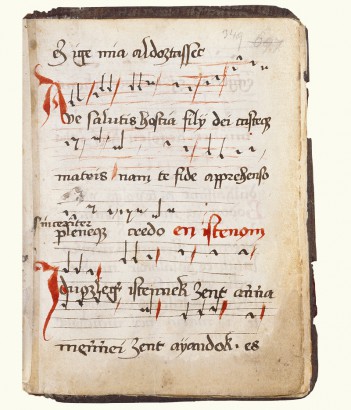 349
ez ige mia aldoztassec
Ave salutis hostia fily dei cristeq
matris nam te fide apprehenso
sinceriter
pleneqz credo en istenom
Idvozlegy istennek zent anna
mennei zent ayandok. es